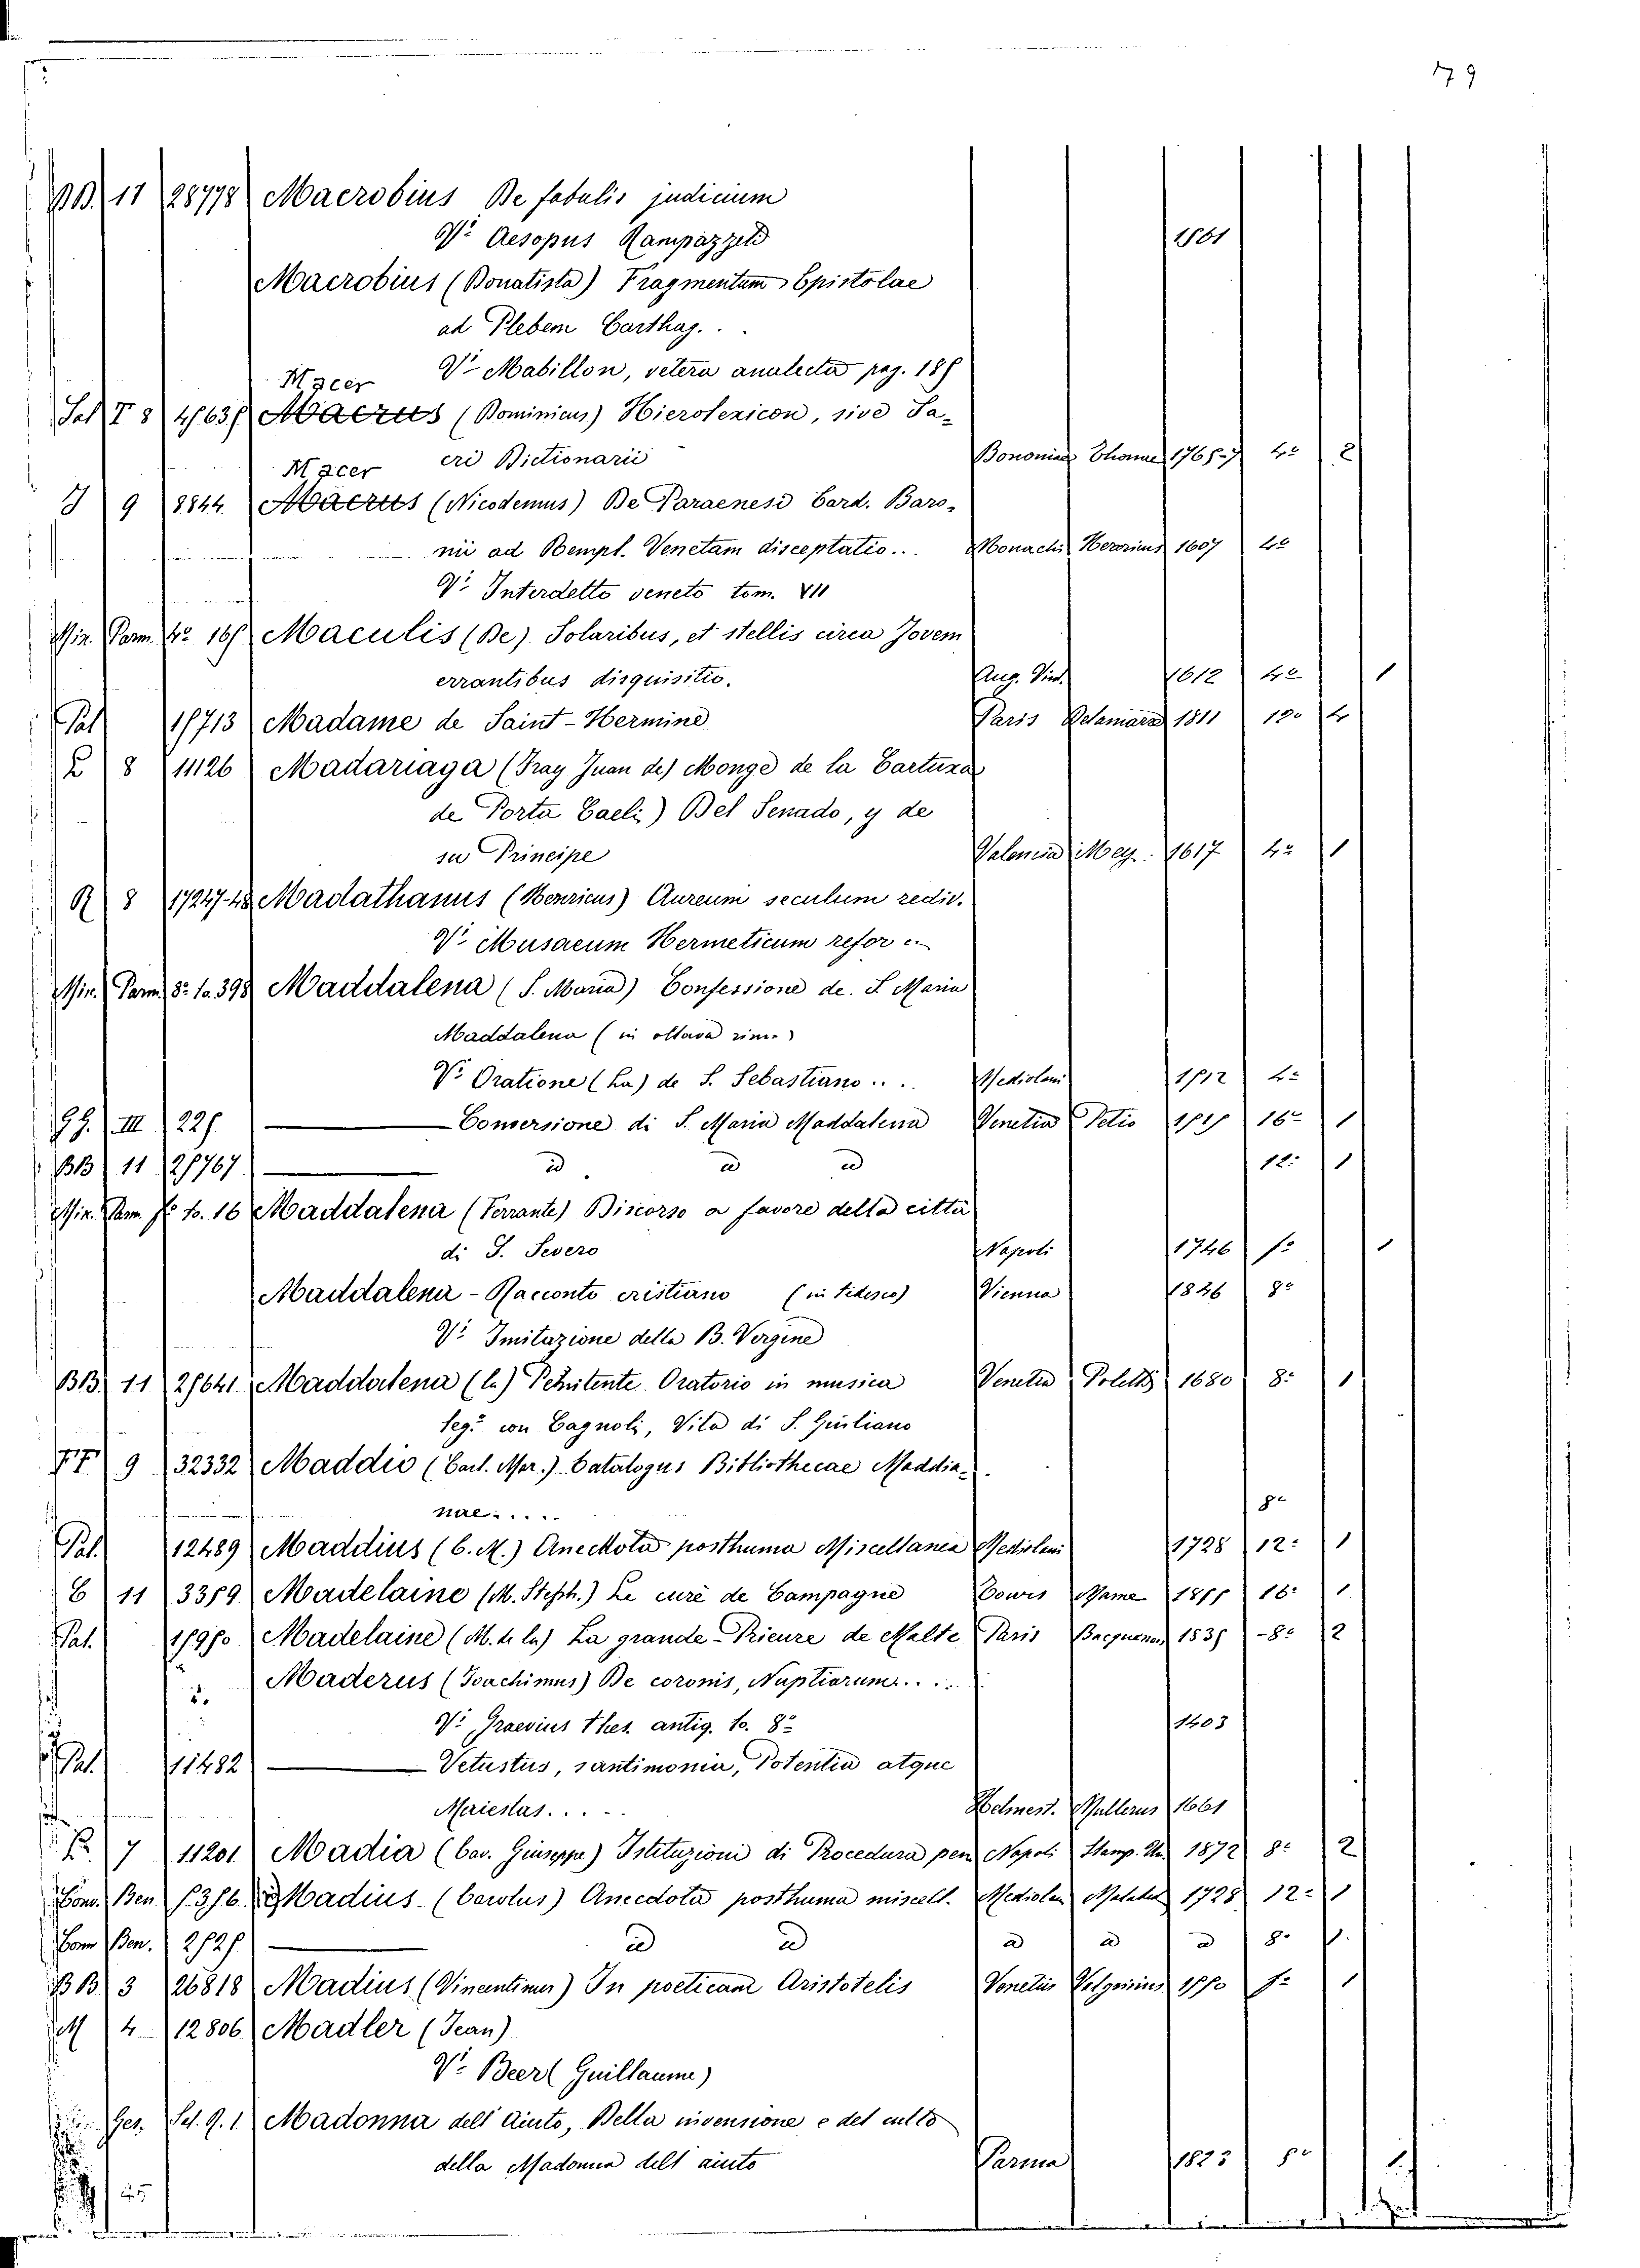 179
BB. 11 28778 Macrobius De fabulis judicium
V.° Aesopus Rampazzetto 1561
Macrobius (Donatista) Fragmentum Epistolae
ad Plebem Carthag. . .
V.° Mabillon, vetera analecta pag. 185
Macer
Sal T 8 4563 Macrus (Dominicus) Hierolexicon, sive Sa-
cri Dictionarii Bononiae Thomae 1765-7 4.° 2
Macer
J 9 8844 Macrus (Nicodemus) De Paraenesi Card. Baro-
nii ad Rempl. Venetam disceptatio... Monachii 1607 4.°
V.° Interdetto veneto tom. VII
Mis. Parm. 4.° 165 Maculis (De) Solaribus, et stellis circa Jovem
errantibus disquisitio. Aug. Vind. 1612 4.° 1
Pal 15713 Madame de Saint-Hermine Paris Delamarre 1811 12.° 4
L 8 11126 Madariaga (Fray Juan de) Monge de la Cartuxa
de Porta Caeli) Del Senado, y de
su Principe Valencia Mey 1617 4.° 1
R 8 17247-48 Madathanus (Henricus) Aureum seculum rediv.
V.° Musaeum Hermeticum refor
Mis. Parm. 8.° to. 398 Maddalena (S. Maria) Confessione de. S. Maria
Maddalena (in ottava rima)
V.° Oratione (La) de S. Sebastiano.... Mediolani 1512 4.°
GG. III 225 — Conversione di S. Maria Maddalena Venetia 1585 16.° 1
BB 11 28767 — id id id 12.° 1
Mis. Parm. f.° to. 16 Maddalena (Ferrante) Discorso a favore della città
di S. Severo Napoli 1746 f.° 1
Maddalena - Racconto cristiano (in Tedesco) Vienna 1826 8.°
V.° Imitazione della B. Vergine
BB. 11 28641 Maddalena (la) Penitente Oratorio in musica Venetia Poletti 1680 8.° 1
leg.° con Cagnoli, Vita di S. Giuliano
FF 9 32332 Maddio (Carl. Mar.) Catalogus Bibliothecae Maddia-
nae..... 8.°
Pal. 12489 Maddius (C. M.) Aneckota posthuma Miscellanea Mediolani 1728 12.° 1
C 11 3359 Madelaine (M. Steph.) Le curé de Campagne Tours Mame 1855 16.° 1
Pal. Madelaine (M. de la) La grande-Prieure de Malte Paris 1835 8.° 2
Maderus (Joachimus) De coronis, Nuptiarum....
V.° Graevius thes. antiq. to. 8.° 1403
Pal. 11482 — Vetustus, santimonia, Potentia atque
Maiestas..... Helmest. Mullerus 1661
7 11201 Madia (Cav. Giuseppe) Istituzioni di Procedura pen Napoli Stamp. Un. 1872 8.° 2
Com. Ben. Madius (Carolus) Anecdota posthuma miscell. Mediolan Malatesta 1728 12.° 1
Com Ben. 2525 — id id id id id 8.° 1.
BB 3 26818 Madius (Vincentinus) In poeticam Aristotelis Venetiis Valgrisius 1550 f.° 1
M 4 12806 Madler (Jean)
V.° Beer (Guillaume)
Ges. Sal. Q. 1 Madonna dell Aiuto, Della invensione e del culto
della Madonna dell aiuto Parma 1823 8.° 1